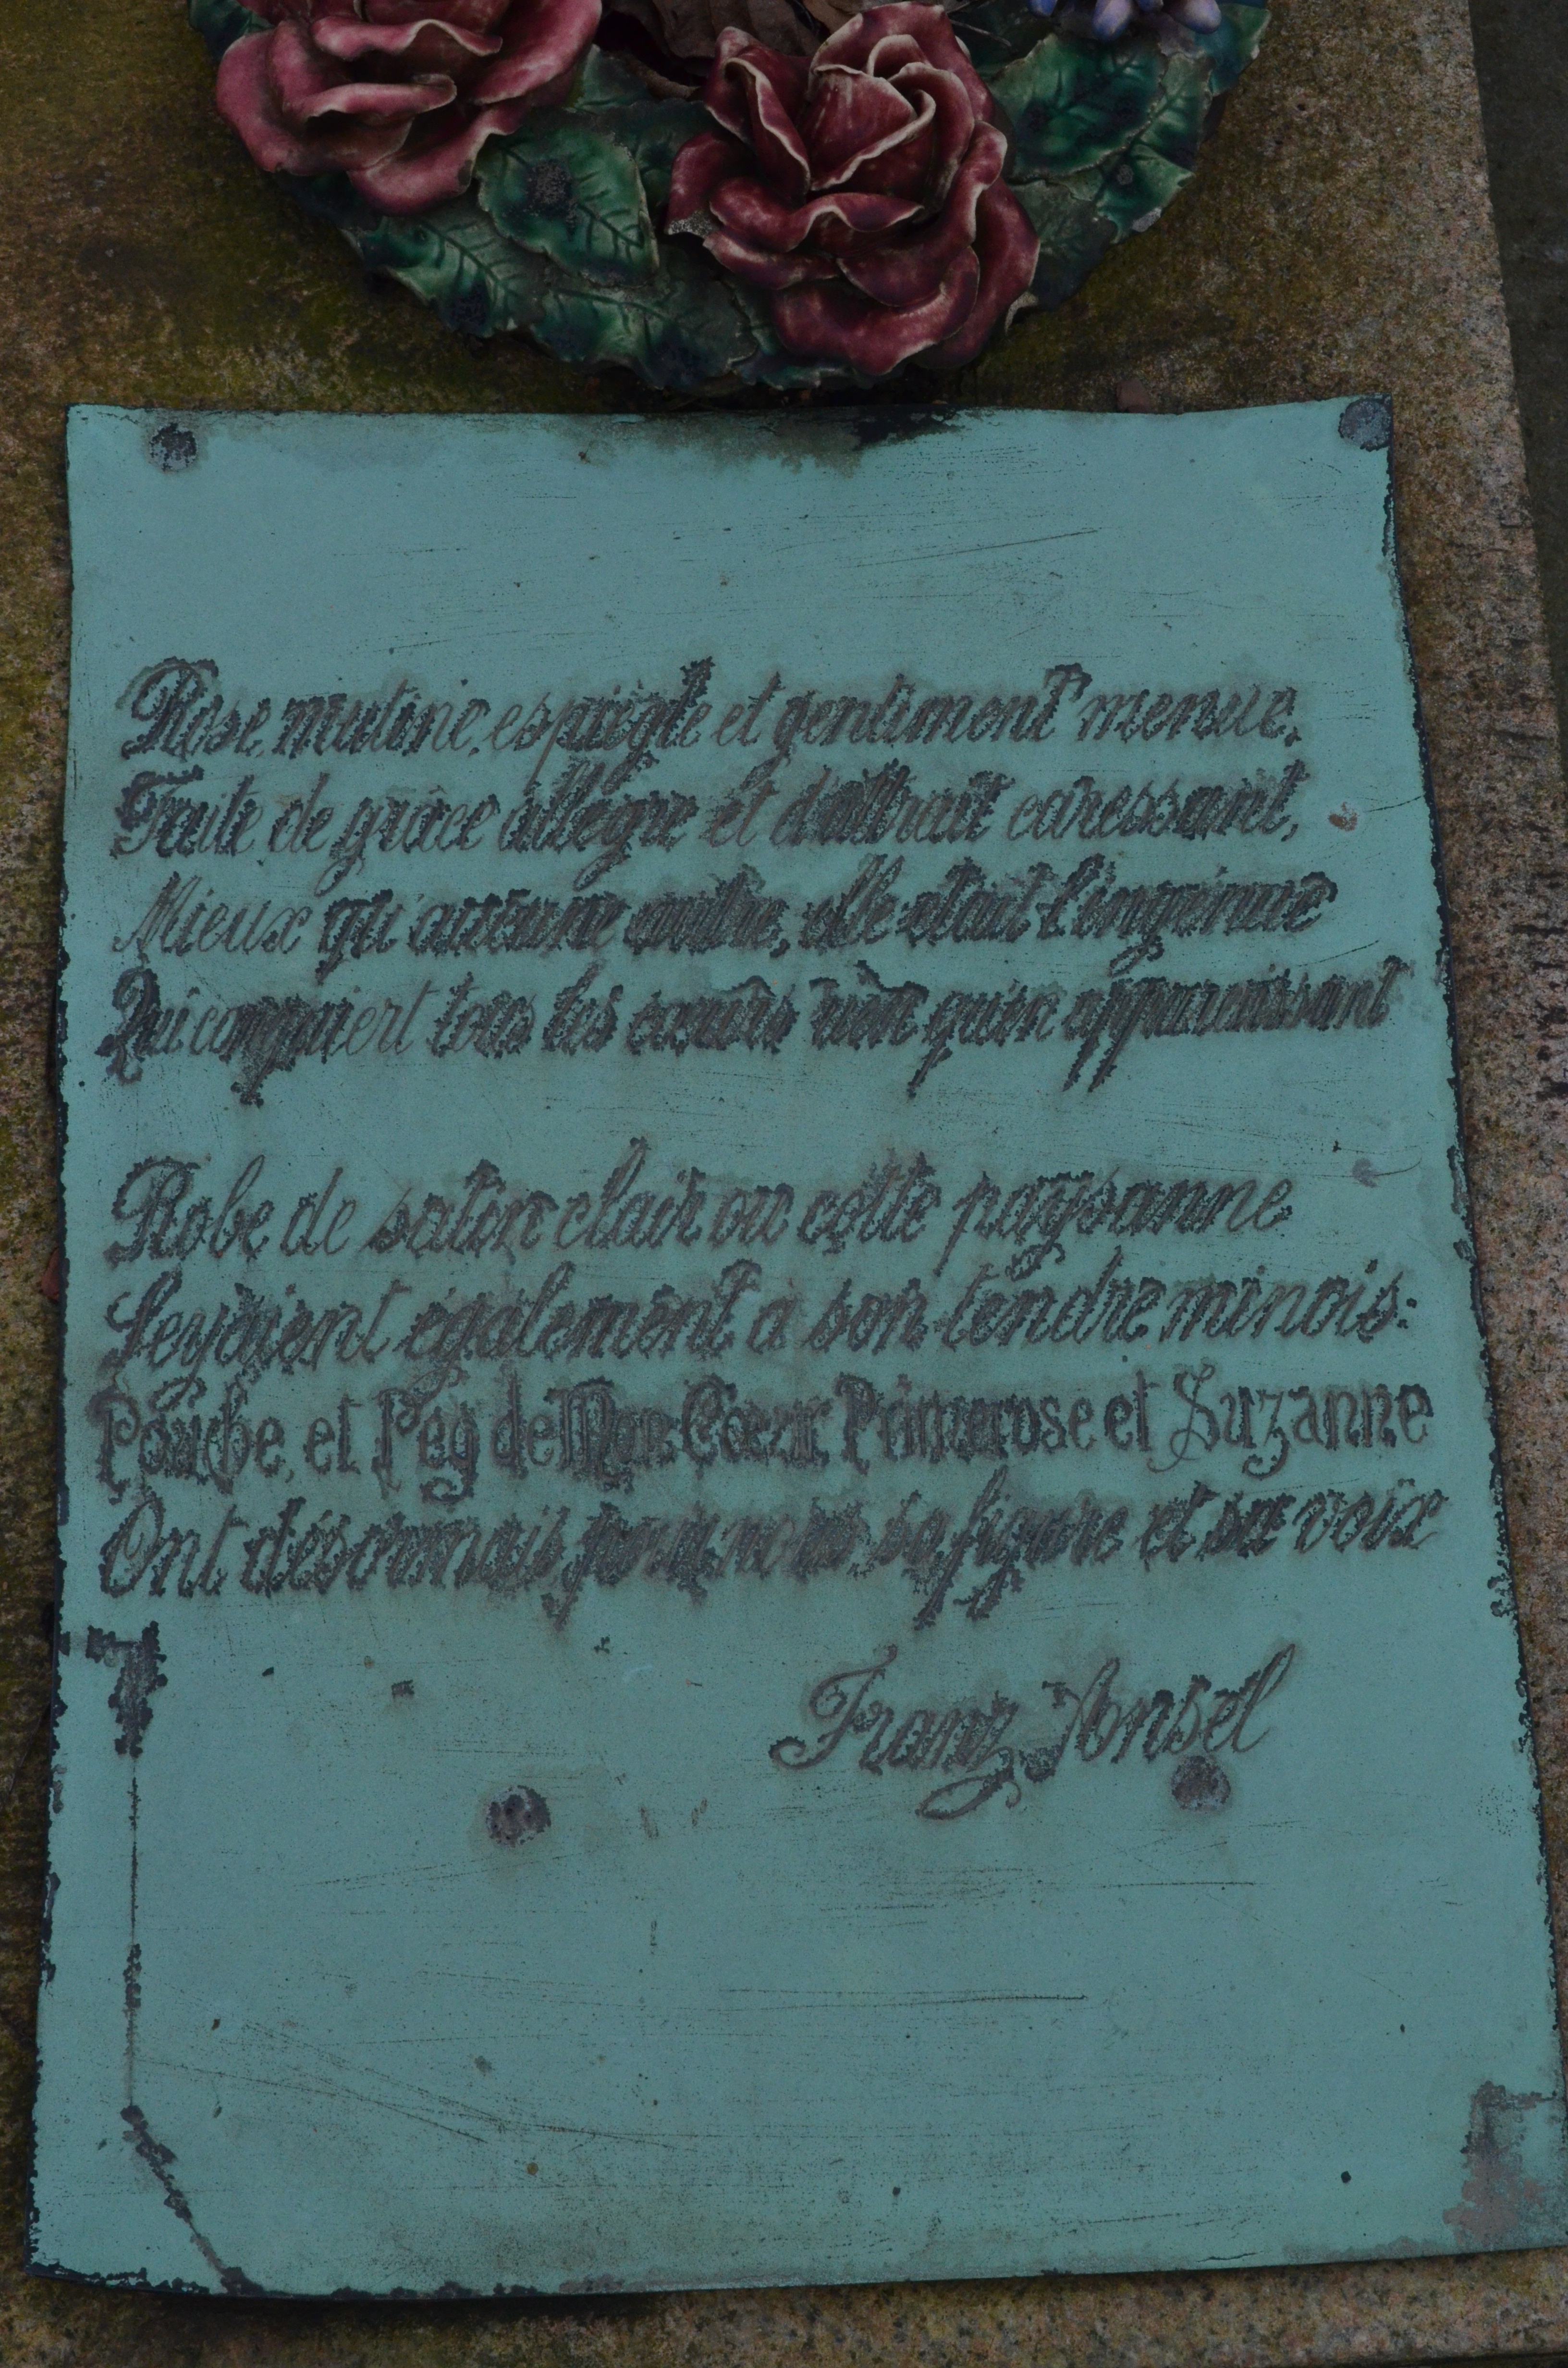 Rose, mutine, espiègle et gentiment menue,
Faite de grâce allègre et d'attrait caressant,
Mieux qu'aucune autre, elle était l'ingénue
Qui conquiert tous les cœurs rien qu'en apparaissant
Robe de satin clair ou cotte paysanne
Seyaient également à son tendre minois:
Poucbe, et Peg de Mon Cœur, Primerose et Suzanne
Ont désormais pour nous sa figure et sa voix
Franz Ansel